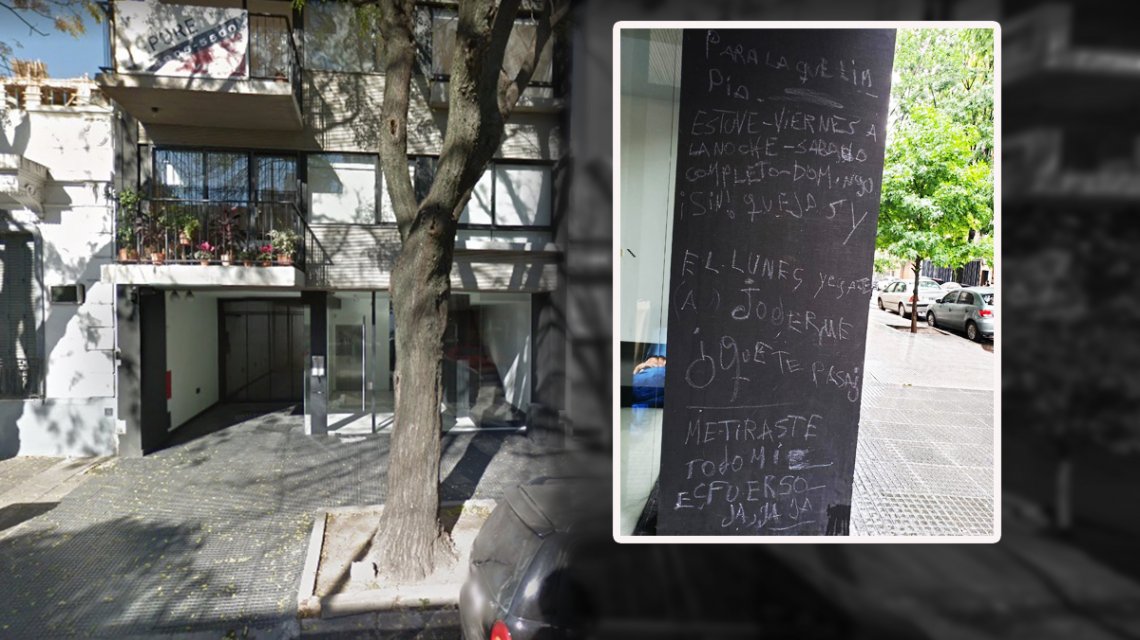 PURE
PARA LA QUE LIM
PIA.
ESTUVE-VIERNES A
LA NOCHE-SABADO
COMPLETO-DOMINGO
¡SIN. QUEJAS Y
EL. LUNES
(A) JODERME
¿QUE TE PASA?
ME TIRASTE
TODO MI
ESFUERSO-
JA, JA JA